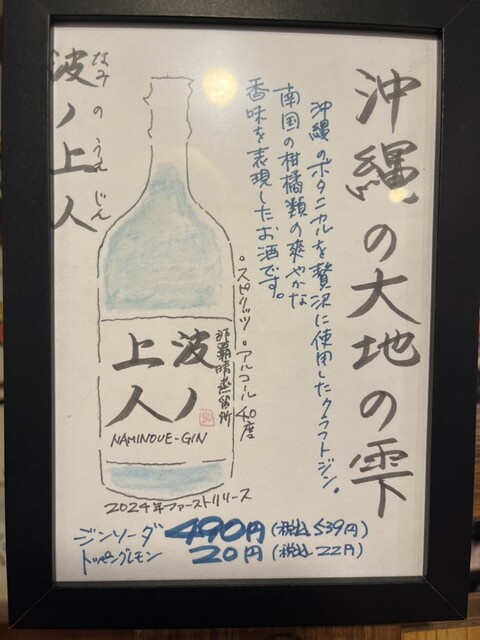 沖縄の大地の雫
沖縄のボタニカルを贅沢に使用したクラフトジン。
南国の柑橘類の爽やかな
香味を表現したお酒です。
・スピリッツ ・アルコール 40度
波ノ上人
なみのうえじん
波ノ
上人
那覇晴蒸留所
NAMINOUE-GIN
2024年ファーストリリース
ジンソーダ 490円(税込539円)
トッピングレモン 20円(税込22円)